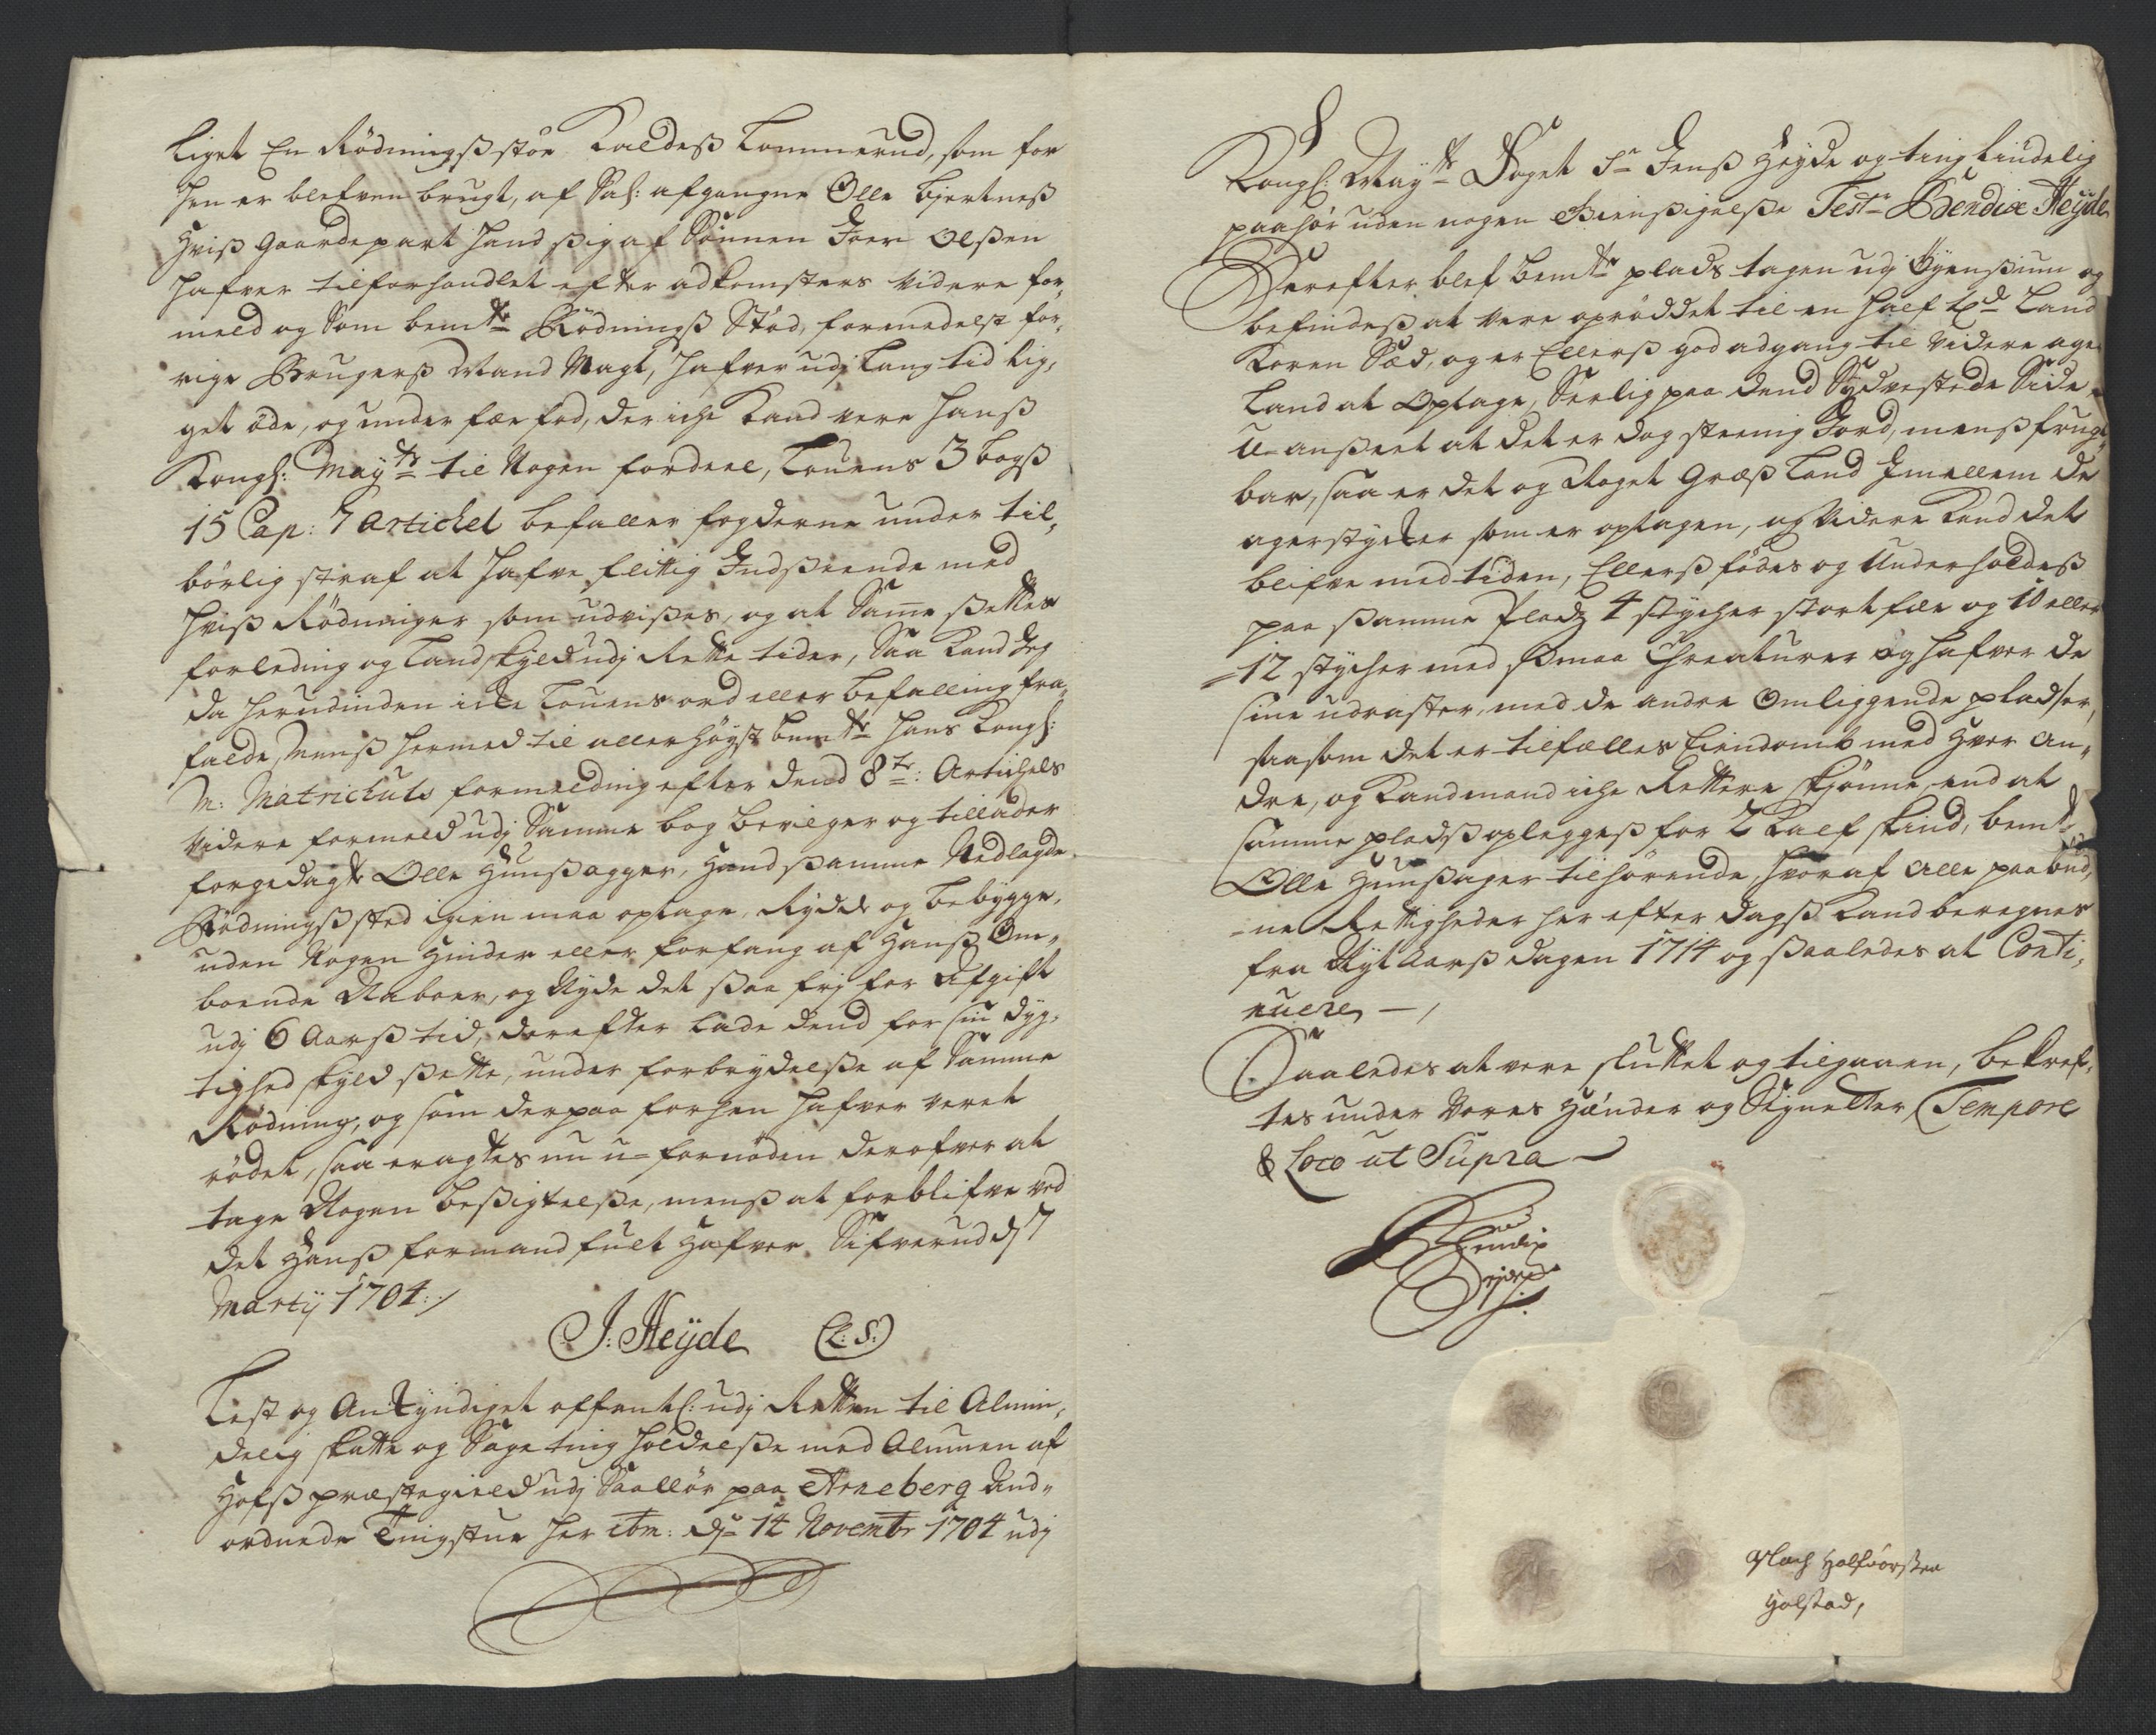 liget En Rødningsstøe Kaldeß Lommerud, som for
hen er blefven brugt, af Sal: afgangne Olle Biertneß
Hviß Gaardepart hand sig af Sønnen Joen Olßen
hafver tilforhandlet efter adkomsters videre for,
meld og Som bem:te Rødnings Stød, formedelst for,
rige Brugerß Mand Magt, hafver udj lang tid lig,
get øde, og under fæe fod, der iche Kand vere hanß
Kongl: May:ts til Nogen fordeel, Louens 3 bogß
15 Cap: 7 Artichel befaller fogderne under til,
børlig straf at hafve flittig Indseende med
hviß Rødninger som udvißes, og at Same ßettes
forleding og Landskyld udj Rette tider, Saa Kand Jeg
da herudinden icke Louens ord eller befalling fra,
falde, Menß hermed til allerhøyst bem:te Hans Kongl:
M: Matriculs formelding efter dend 8:te: Artichels
videre formeld udj Samme bog bevilger og tillader
forgedagte Olle Hunßagger, Hand ßamme Nedlagde
Rødningßsted igien maa optage, Rydde og bebygge,
uden Nogen Hinder eller forfang af Hanß Om,
boende Naboer, og Nyde det ßaa frj for Afgift
udj 6 Aarß tid, derefter lade dend for sin dyg,
tighed skyld ßette, under forbrydelße af Samme
Rødning, og som derpaa forhen hafver veret
rødet, saa eragtes nu u-fornøden derofver at
tage Nogen beßigtelße, menß at forblifve ved
det Hanß formand fult hafver. Sifverud d/ 7
Martij 1704:/
J: Heyde (L:S:)
Lest og Ankyndiget offentl: udj Retten til Almin,
delig skatte og Sageting holdelße med Almuen af
Hofß præstegield udj Saallør paa Arneberg And,
ordnede Tingstue her ibm: d: 14 Novembr 1704 udj
Kongl: May:ts Foget Sr Jenß Heyde og ting liudelig
paahør uden nogen Gienßigelße Test: Bendix Heyde
Derefter blef bem:te plads tagen udj Øyensiun og
befindeß at vere oprøddet til en half td Land
Koren Sæd, og er Ellerß god adgang til videre ager
Land at Optage, Serlig paa dend Sydvestede Side,
U-anßeet at det er dog steenig Jord, menß frugt,
bar, saa er det og Noget Græß Land Imellem de
agerstycker som er optagen, og videre Kand det
blifve med tiden, Ellerß fødes og Underholdeß
paa ßamme Pladz 4 stycher stort fæe og 10 eller
12 stycher med Smaa Chreaturer og hafver de
sine udraster, med de andre Omliggende pladser,
saasom det er tilfælles Eiendomb med Hver An,
dre, og Kand mand iche Rettere skiønne, end at
samme pladß opleggeß for 2 Kalfskind, bem:te
Olle Hunßager tilhørende, hvoraf Alle paabud,
ne Rettigheder her efter dagß Kand beregnes
fra Nyt Aarß dagen 1714 og ßaaledes at Conti,
nuere, —
Saaledes at vere sluttet og tilgaaen, bekref,
tes under Vores Hænder og Signetter Tempore
& Loco ut Supra
Bendix
Heyde
Holfvorßen
Holstad,